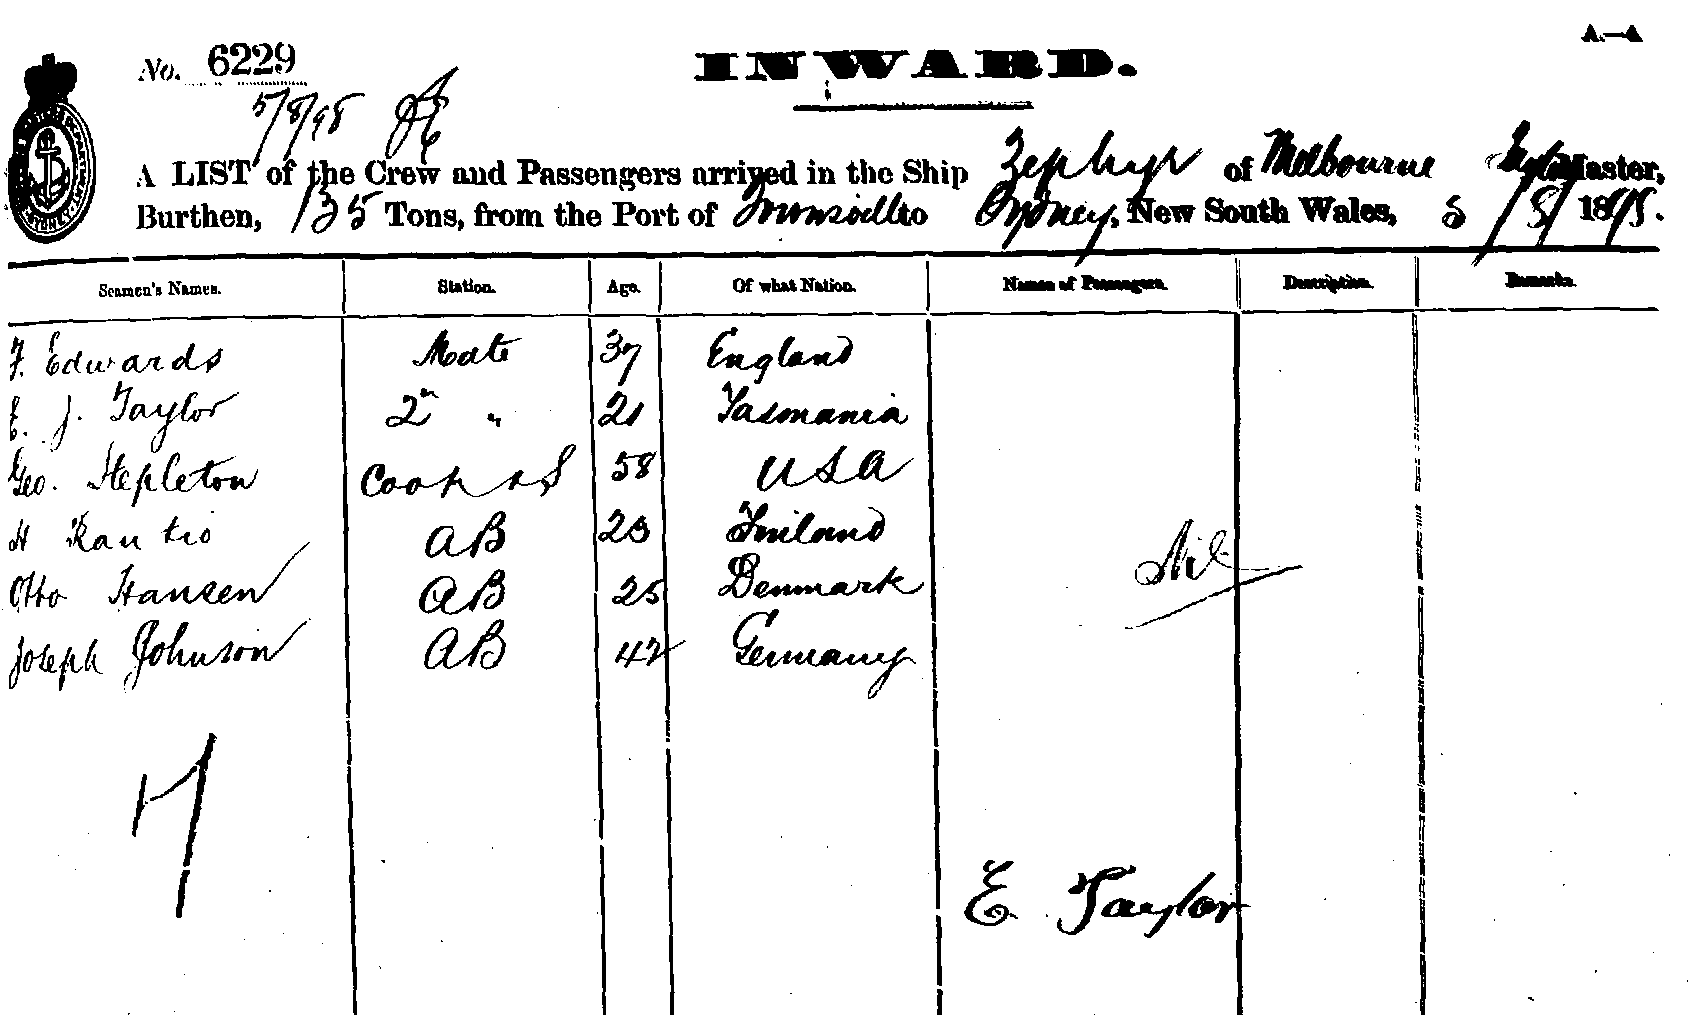 A.—A
No. 6229
INWARD.
5/8/98
A LIST of the Crew and Passengers arrived in the Ship Zephyr of Melbourne Taylor Master,
Burthen, 135 Tons, from the Port of Townsville to Sydney, New South Wales, 5/8/1898.
Seamen's Names. Station. Age. Of what Nation. Names of Passengers. Description. Remarks.
F. Edwards Mate 37 England
E. J. Taylor 2nd " 21 Tasmania
Geo. Stepleton Cook & S 58 USA
H Rautio AB 23 Finland
Otto Hansen AB 25 Denmark
Nil
Joseph Johnson AB 42 Germany
7
E Taylor